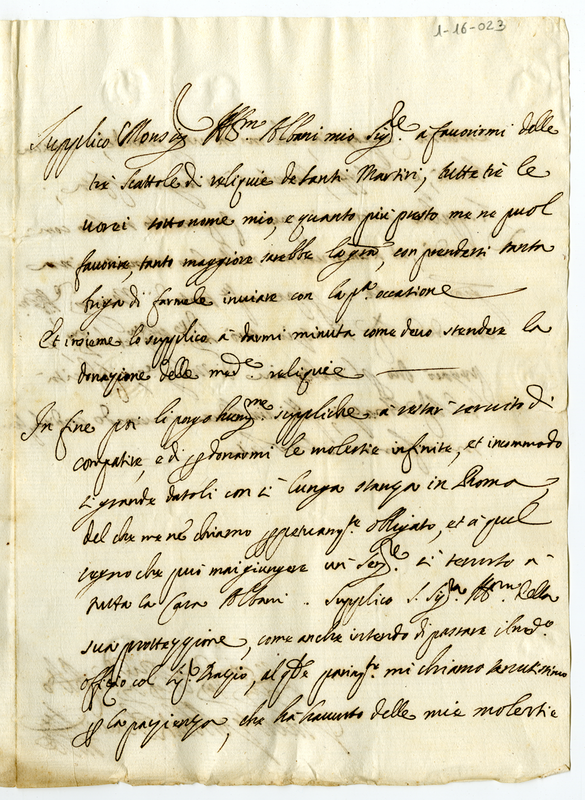 1-16-023
Supplico Monsig. Ill.mo Albani mio Sig.re a favorirmi delle
trè scattole di reliquie de santi Martiri, tutte trè le
vorei sotto nome mio, e quanto più presto me ne puol
favorire, tanto maggiore sarebbe la gra, con prendersi tanta
briga di farmele inviare con la p.a occatione
Et insieme lo supplico à darmi minuta come devo stendere la
donazione delle med.e reliquie
In fine poi li pogo hum.me suppliche a restar servito di
compatire, e di perdonarmi le molestie infinite, et incommodo
sì grande datoli con sì lunga stanza in Roma,
del che me ne chiamo perpetuam.te obligato, et à quel
segno che può mai giungere un Ser.re sì tenuto à
tutta la Casa Albani. Supplico S. Sig.ria Ill.ma della
sua protteggione, come anche intendo di passare il med.o
officio col Sig. Orazio, al q.le parim.te mi chiamo tenutissimo
per la pazienza, che hà havuto delle mie molestie